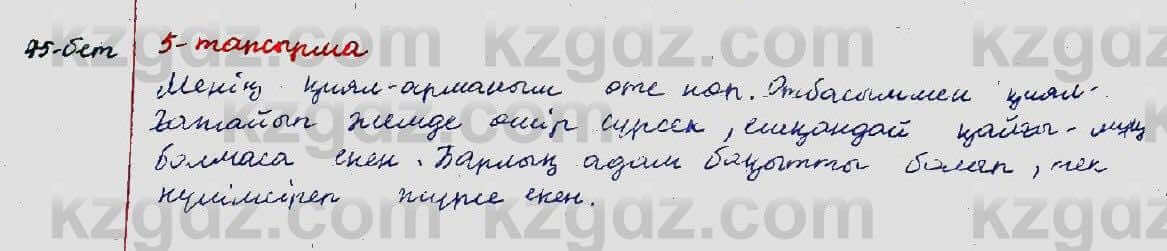 75-бет 5-тапсырма
Менің қиял-арманым өте көп. Отбасыммен қиял-
ғажайып жерде өмір сүрсек, ешқандай қайғы-мұң
болмаса екен. Барлық адам бақытты болып, тек
күлімсіреп жүрсе екен.
kzgdz.com kzgdz.com
kzgdz.com kzgdz.com